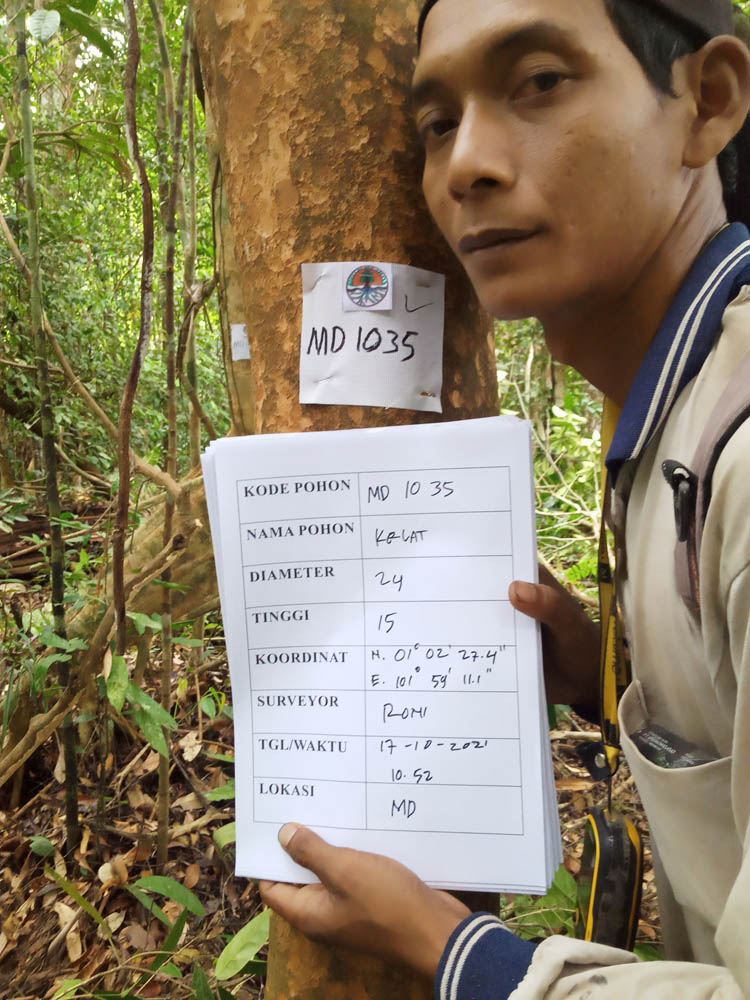 MD 1035
KODE POHON MD 1035
NAMA POHON KELAT
DIAMETER 24
TINGGI 15
KOORDINAT N. 01° 02' 27.4"
E. 101° 59' 11.1"
SURVEYOR ROMI
TGL/WAKTU 17-10-2021
10.52
LOKASI MD